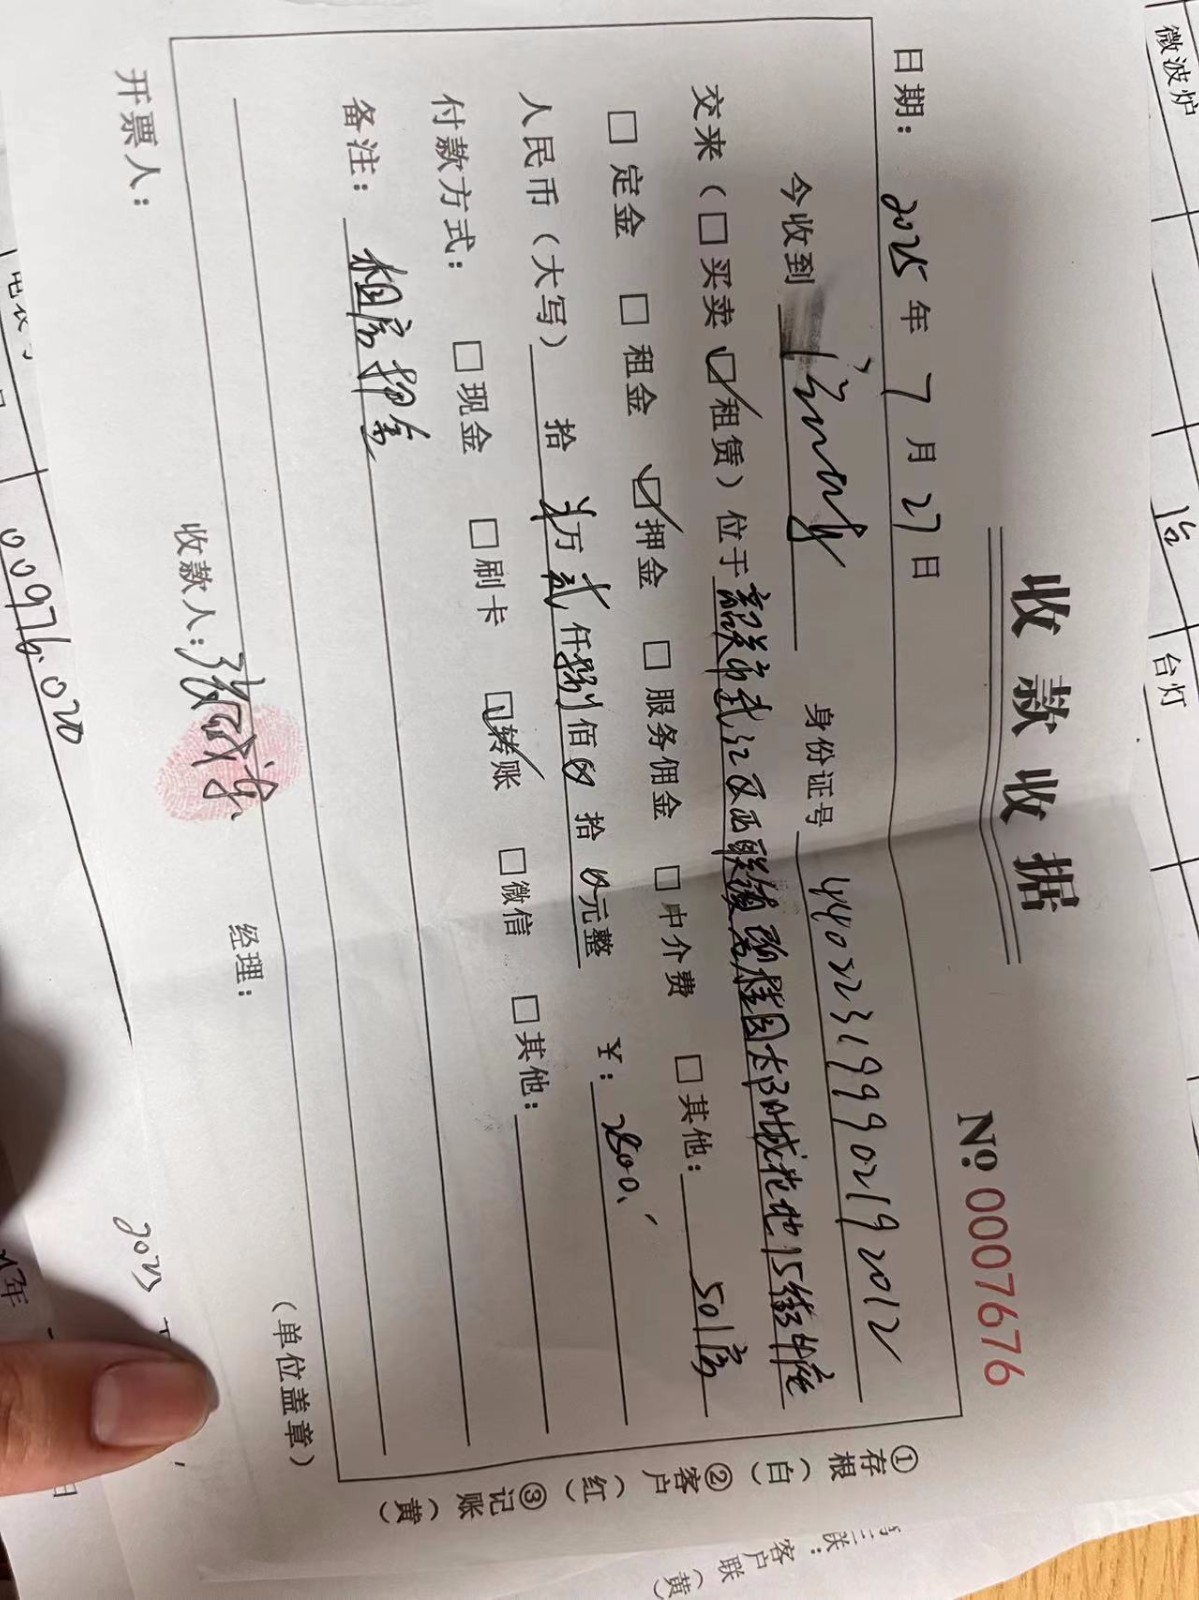 收款收据
№ 0007676
日期：2025年7月27日
今收到 身份证号 440223199902192012
交来（□买卖 ☑租赁）位于韶关市武江区西联镇碧桂园太阳城花地15街4座
□定金 □租金 ☑押金 □服务佣金 □中介费 □其他： 501房
人民币（大写） 拾 万 贰仟捌佰 拾 元整 ￥：2800.
付款方式： □现金 □刷卡 ☑转账 □微信 □其他：
备注： 租房押金
开票人： 收款人： 经理： （单位盖章）
①存根（白） ②客户（红） ③记账（黄）
微波炉
台灯
00976.020
客户联（黄）